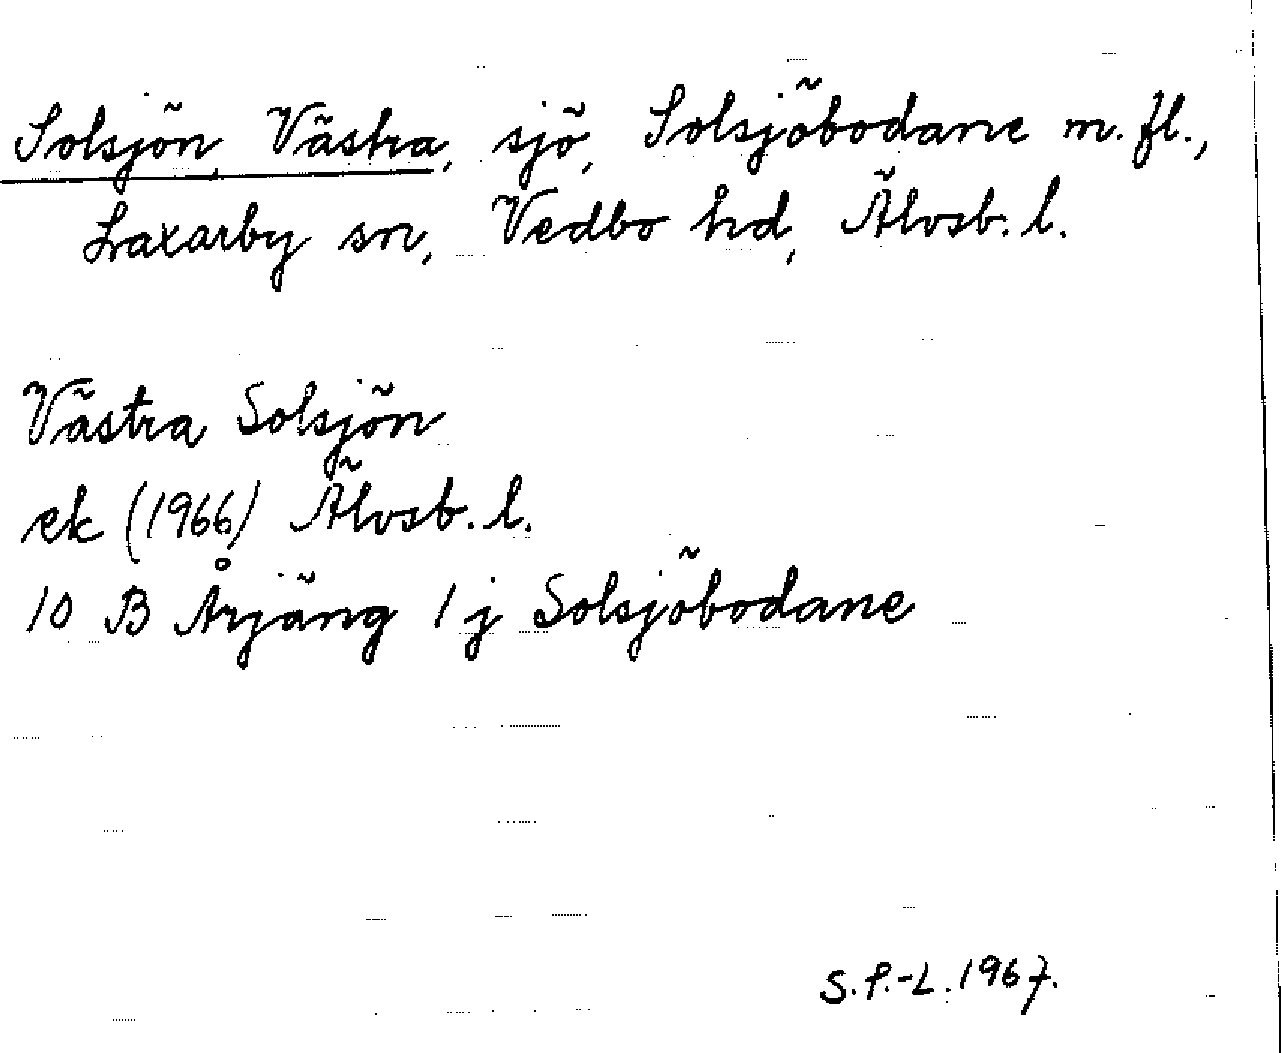 Solsjön, Västra, sjö, Solsjöbodane m. fl.,
Laxarby sn, Vedbo hd, Älvsb. l.
Västra Solsjön
ek (1966) Älvsb. l.
10 B Årjäng 1 j Solsjöbodane
S.P.-L. 1967.